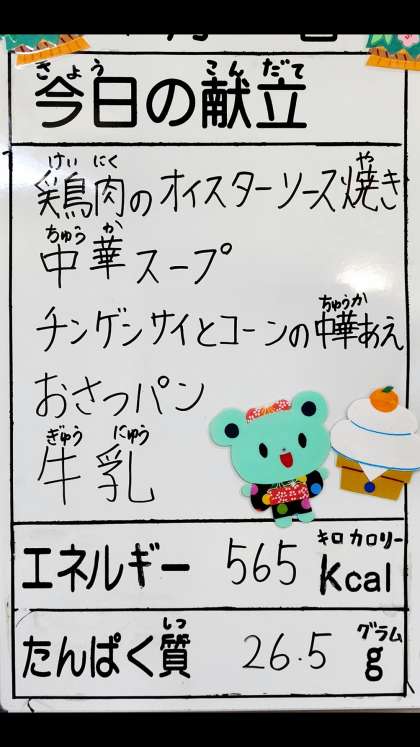 きょう こんだて
今日の献立
けい にく や
鶏肉のオイスターソース焼き
ちゅう か
中華スープ
ちゅうか
チンゲンサイとコーンの中華あえ
おさつパン
ぎゅう にゅう
牛乳
キロ カロリー
エネルギー 565 Kcal
しつ グラム
たんぱく質 26.5 g